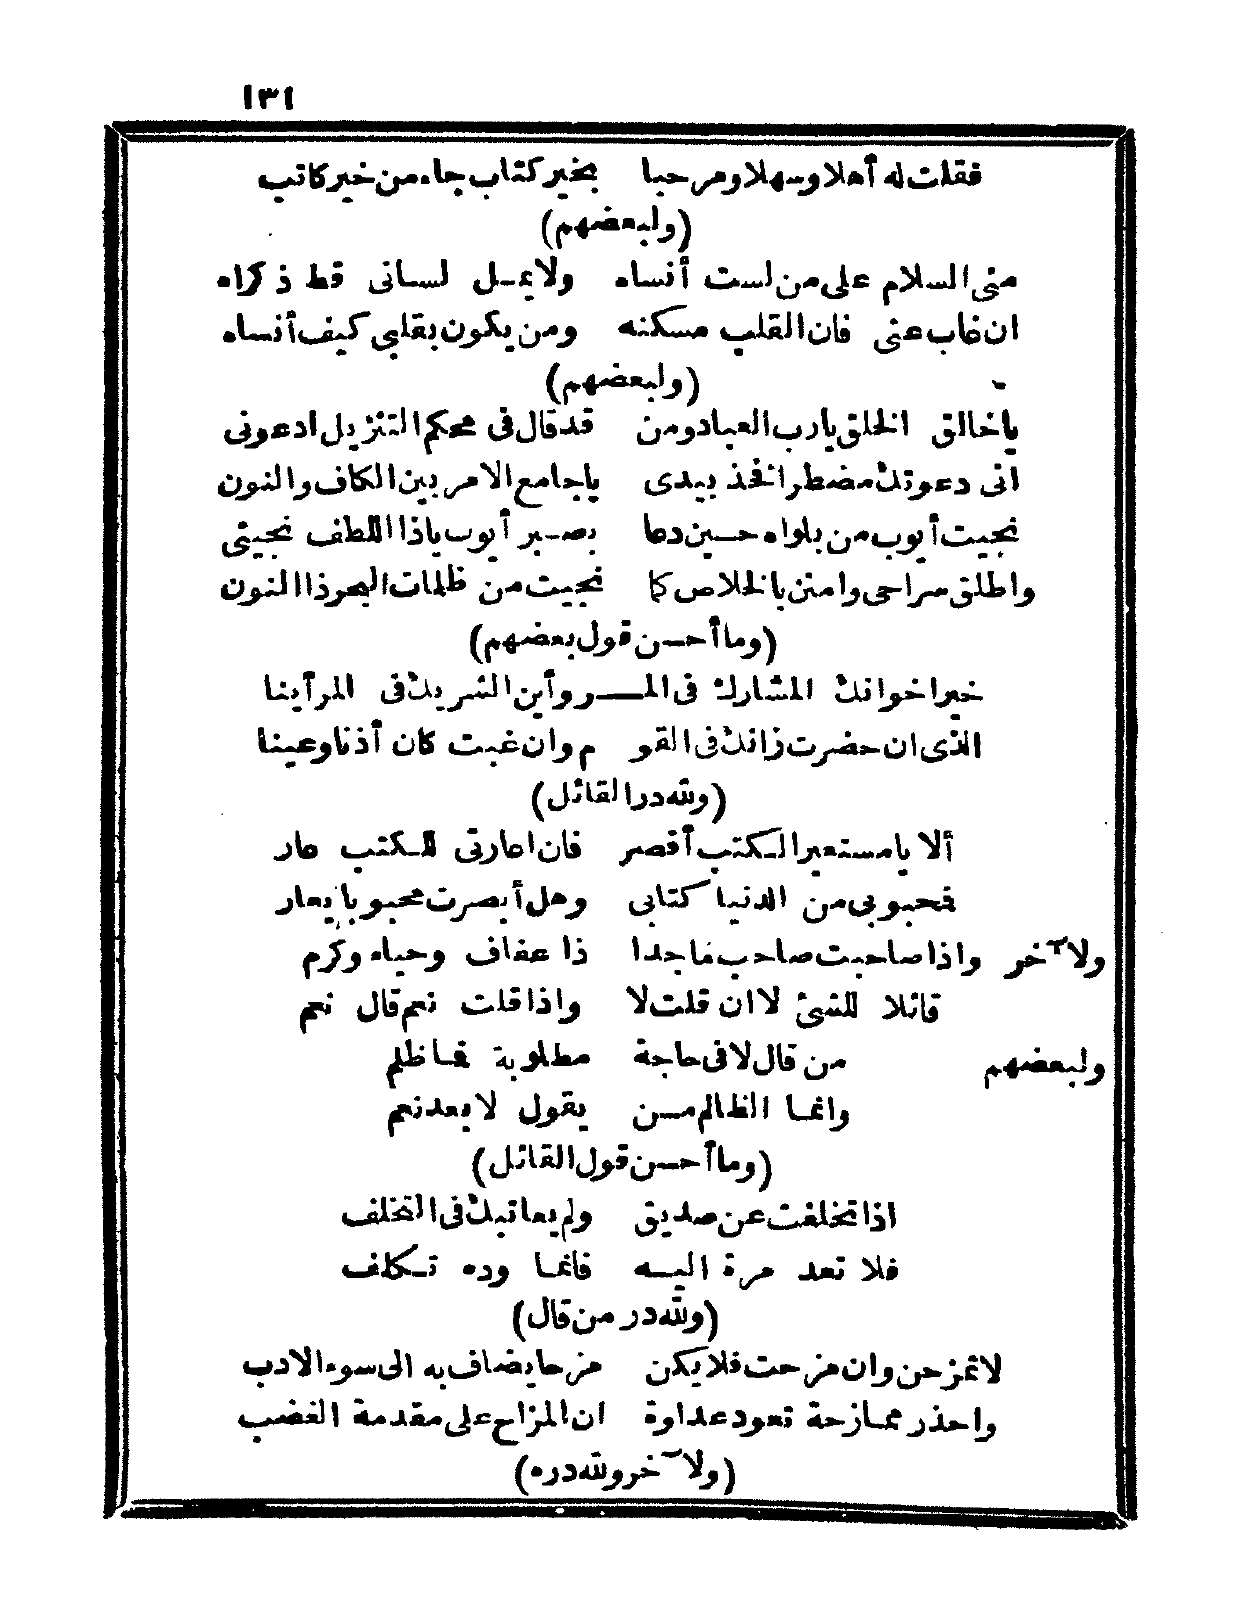 ١٣١
فقلت له أهلا وسهلا ومرحبا بخير كتاب جاء من خير كاتب
(ولبعضهم)
منى السلام على من لست أنساه ولا يمل لسانى قط ذكراه
ان غاب عنى فان القلب مسكنه ومن يكون بقلبى كيف أنساه
(ولبعضهم)
ياخالق الخلق يارب العباد ومن قد قال فى محكم التنزيل ادعونى
انى دعوتك مضطرا فخذ بيدى ياجامع الامر بين الكاف والنون
نجيت أيوب من بلواه حين دعا بصبر أيوب ياذا اللطف نجينى
واطلق سراحى وامنن بالخلاص كما نجيت من ظلمات البحر ذا النون
(وما أحسن قول بعضهم)
خير اخوانك المشارك فى المر وأين الشريك فى المر أينا
الذى ان حضرت زانك فى القو م وان غبت كان أذنا وعينا
(ولله در القائل)
ألا يامستعير الكتب أقصر فان اعارتى للكتب عار
فمحبوبى من الدنيا كتابى وهل أبصرت محبوبا يعار
ولآخر واذا صاحبت صاحب ماجدا ذا عفاف وحياء وكرم
قائلا للشئ لا ان قلت لا واذا قلت نعم قال نعم
ولبعضهم من قال لا فى حاجة مطلوبة فما ظلم
وانما الظالم من يقول لا بعد نعم
(وما أحسن قول القائل)
اذا تخلفت عن صديق ولم يعاتبك فى التخلف
فلا تعد مرة اليه فانما وده تكلف
(ولله در من قال)
لا تمزحن وان مزحت فلا يكن مزحا يضاف به الى سوء الادب
واحذر ممازحة تعود عداوة ان المزاح على مقدمة الغضب
(ولآخر ولله دره)